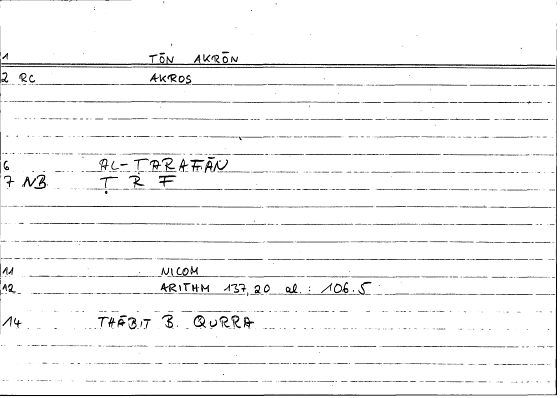 1 TŌN AKRŌN
2 RC AKROS
6 AL-TARAFĀN
7 NB Ṭ R F
11 NICOM
12 ARITHM 137,20 al.: 106.5
14 THĀBIT B. QURRA